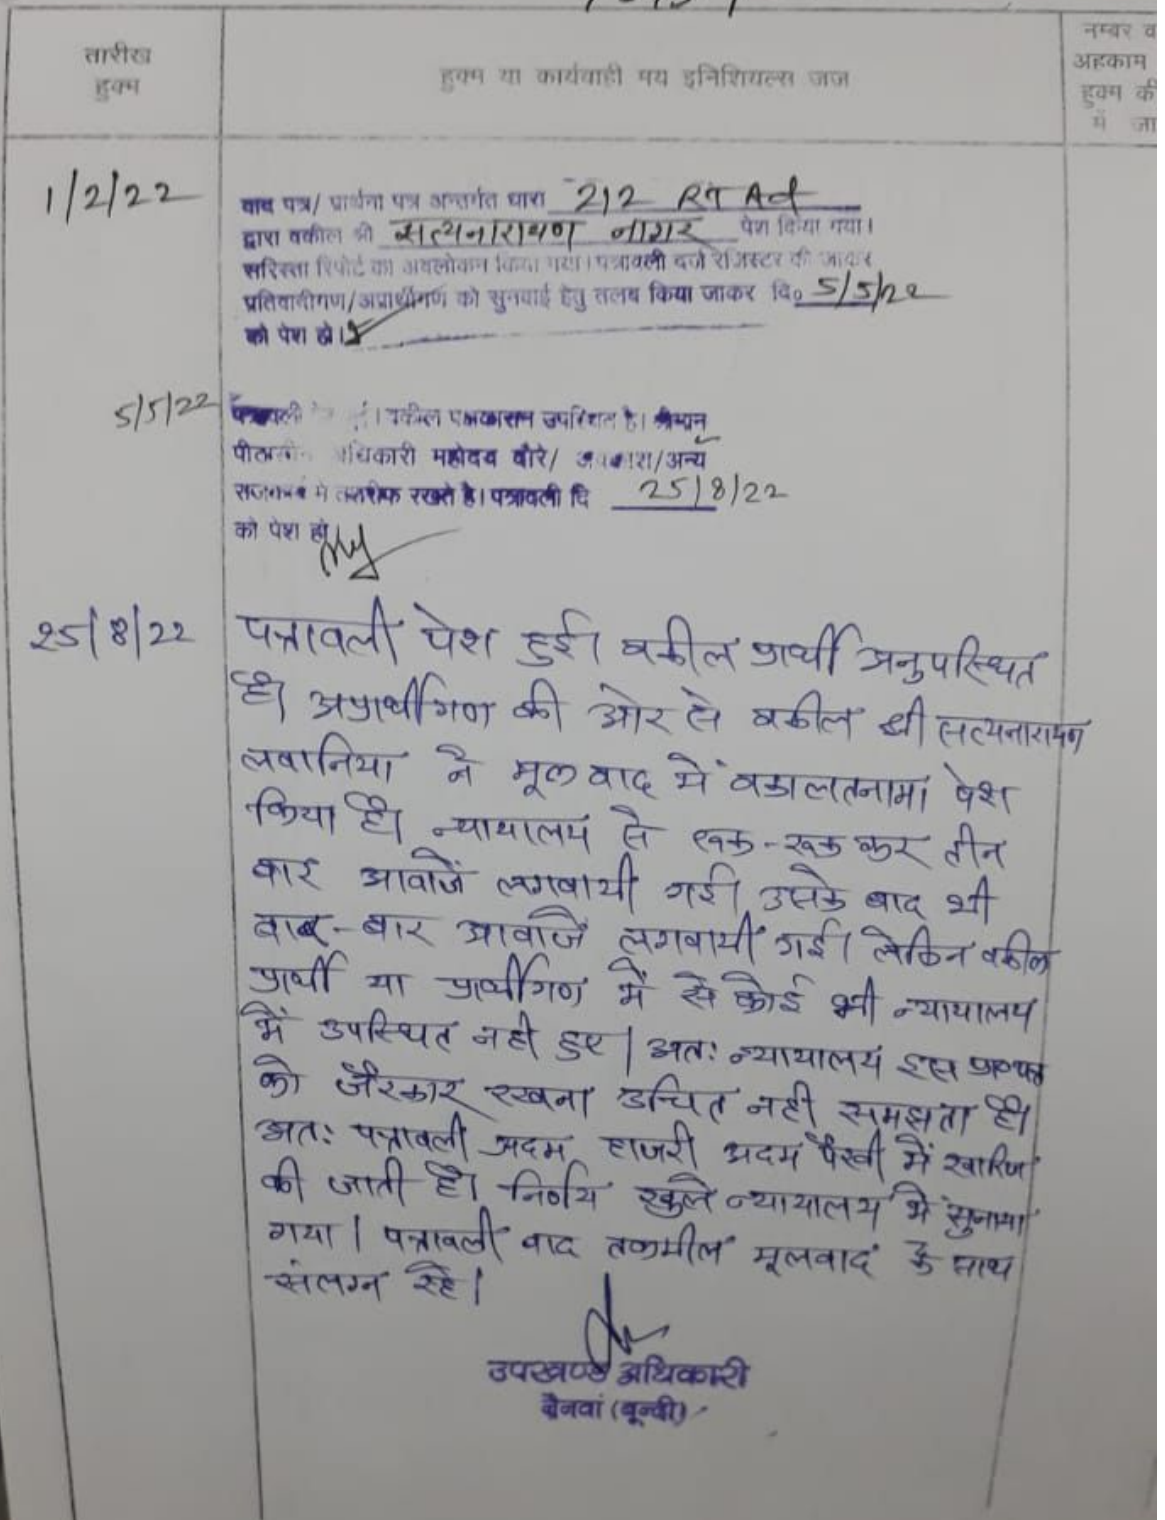 तारीख
हुक्म
हुक्म या कार्यवाही मय इनिशियल्स जज
नम्बर व
अहकाम
हुक्म की
में जा
1/2/22
वाद पत्र/ प्रार्थना पत्र अन्तर्गत धारा 212 RT Act
द्वारा वकील श्री सत्यनारायण नागर पेश किया गया।
सरिस्ता रिपोर्ट का अवलोकन किया गया। पत्रावली दर्ज रजिस्टर की जाकर
प्रतिवादीगण/अप्रार्थीगण को सुनवाई हेतु तलब किया जाकर दि० 5/5/22
को पेश हो।
5/5/22
पत्रावली । वकील पक्षकारान उपस्थित है। श्रीमान
अधिकारी महोदय दौरे/ अवकाश/अन्य
में तशरीफ रखते है। पत्रावली दि 25/8/22
को पेश हो
25/8/22
पत्रावली पेश हुई। वकील प्रार्थी अनुपस्थित
है। अप्रार्थीगण की ओर से वकील श्री सत्यनारायण
लवानिया ने मूल वाद में वकालतनामा पेश
किया है। न्यायालय से रूक-रूक कर तीन
बार आवाजें लगवायी गई। उसके बाद भी
बार-बार आवाजें लगवायी गई। लेकिन वकील
प्रार्थी या प्रार्थीगण में से कोई भी न्यायालय
में उपस्थित नही हुए। अतः न्यायालय इस
को जैरकार रखना उचित नही समझता है।
अतः पत्रावली अदम हाजरी अदम पैरवी में खारिज
की जाती है। निर्णय खुले न्यायालय में सुनाया
गया। पत्रावली बाद तकमील मूलवाद के साथ
संलग्न रहे।
उपखण्ड अधिकारी
नैनवां (बून्दी)